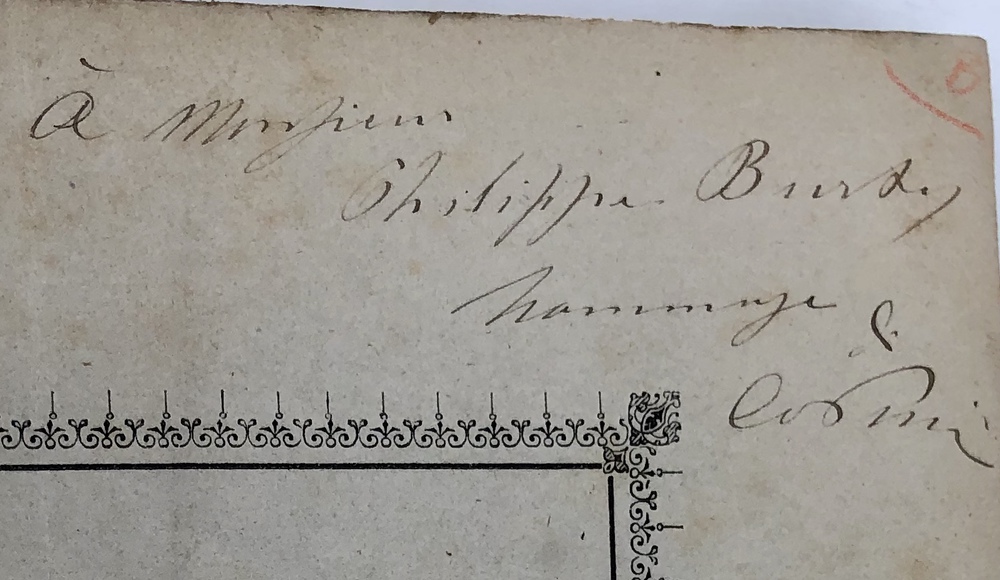 À Monsieur
Philippe Burty
hommage